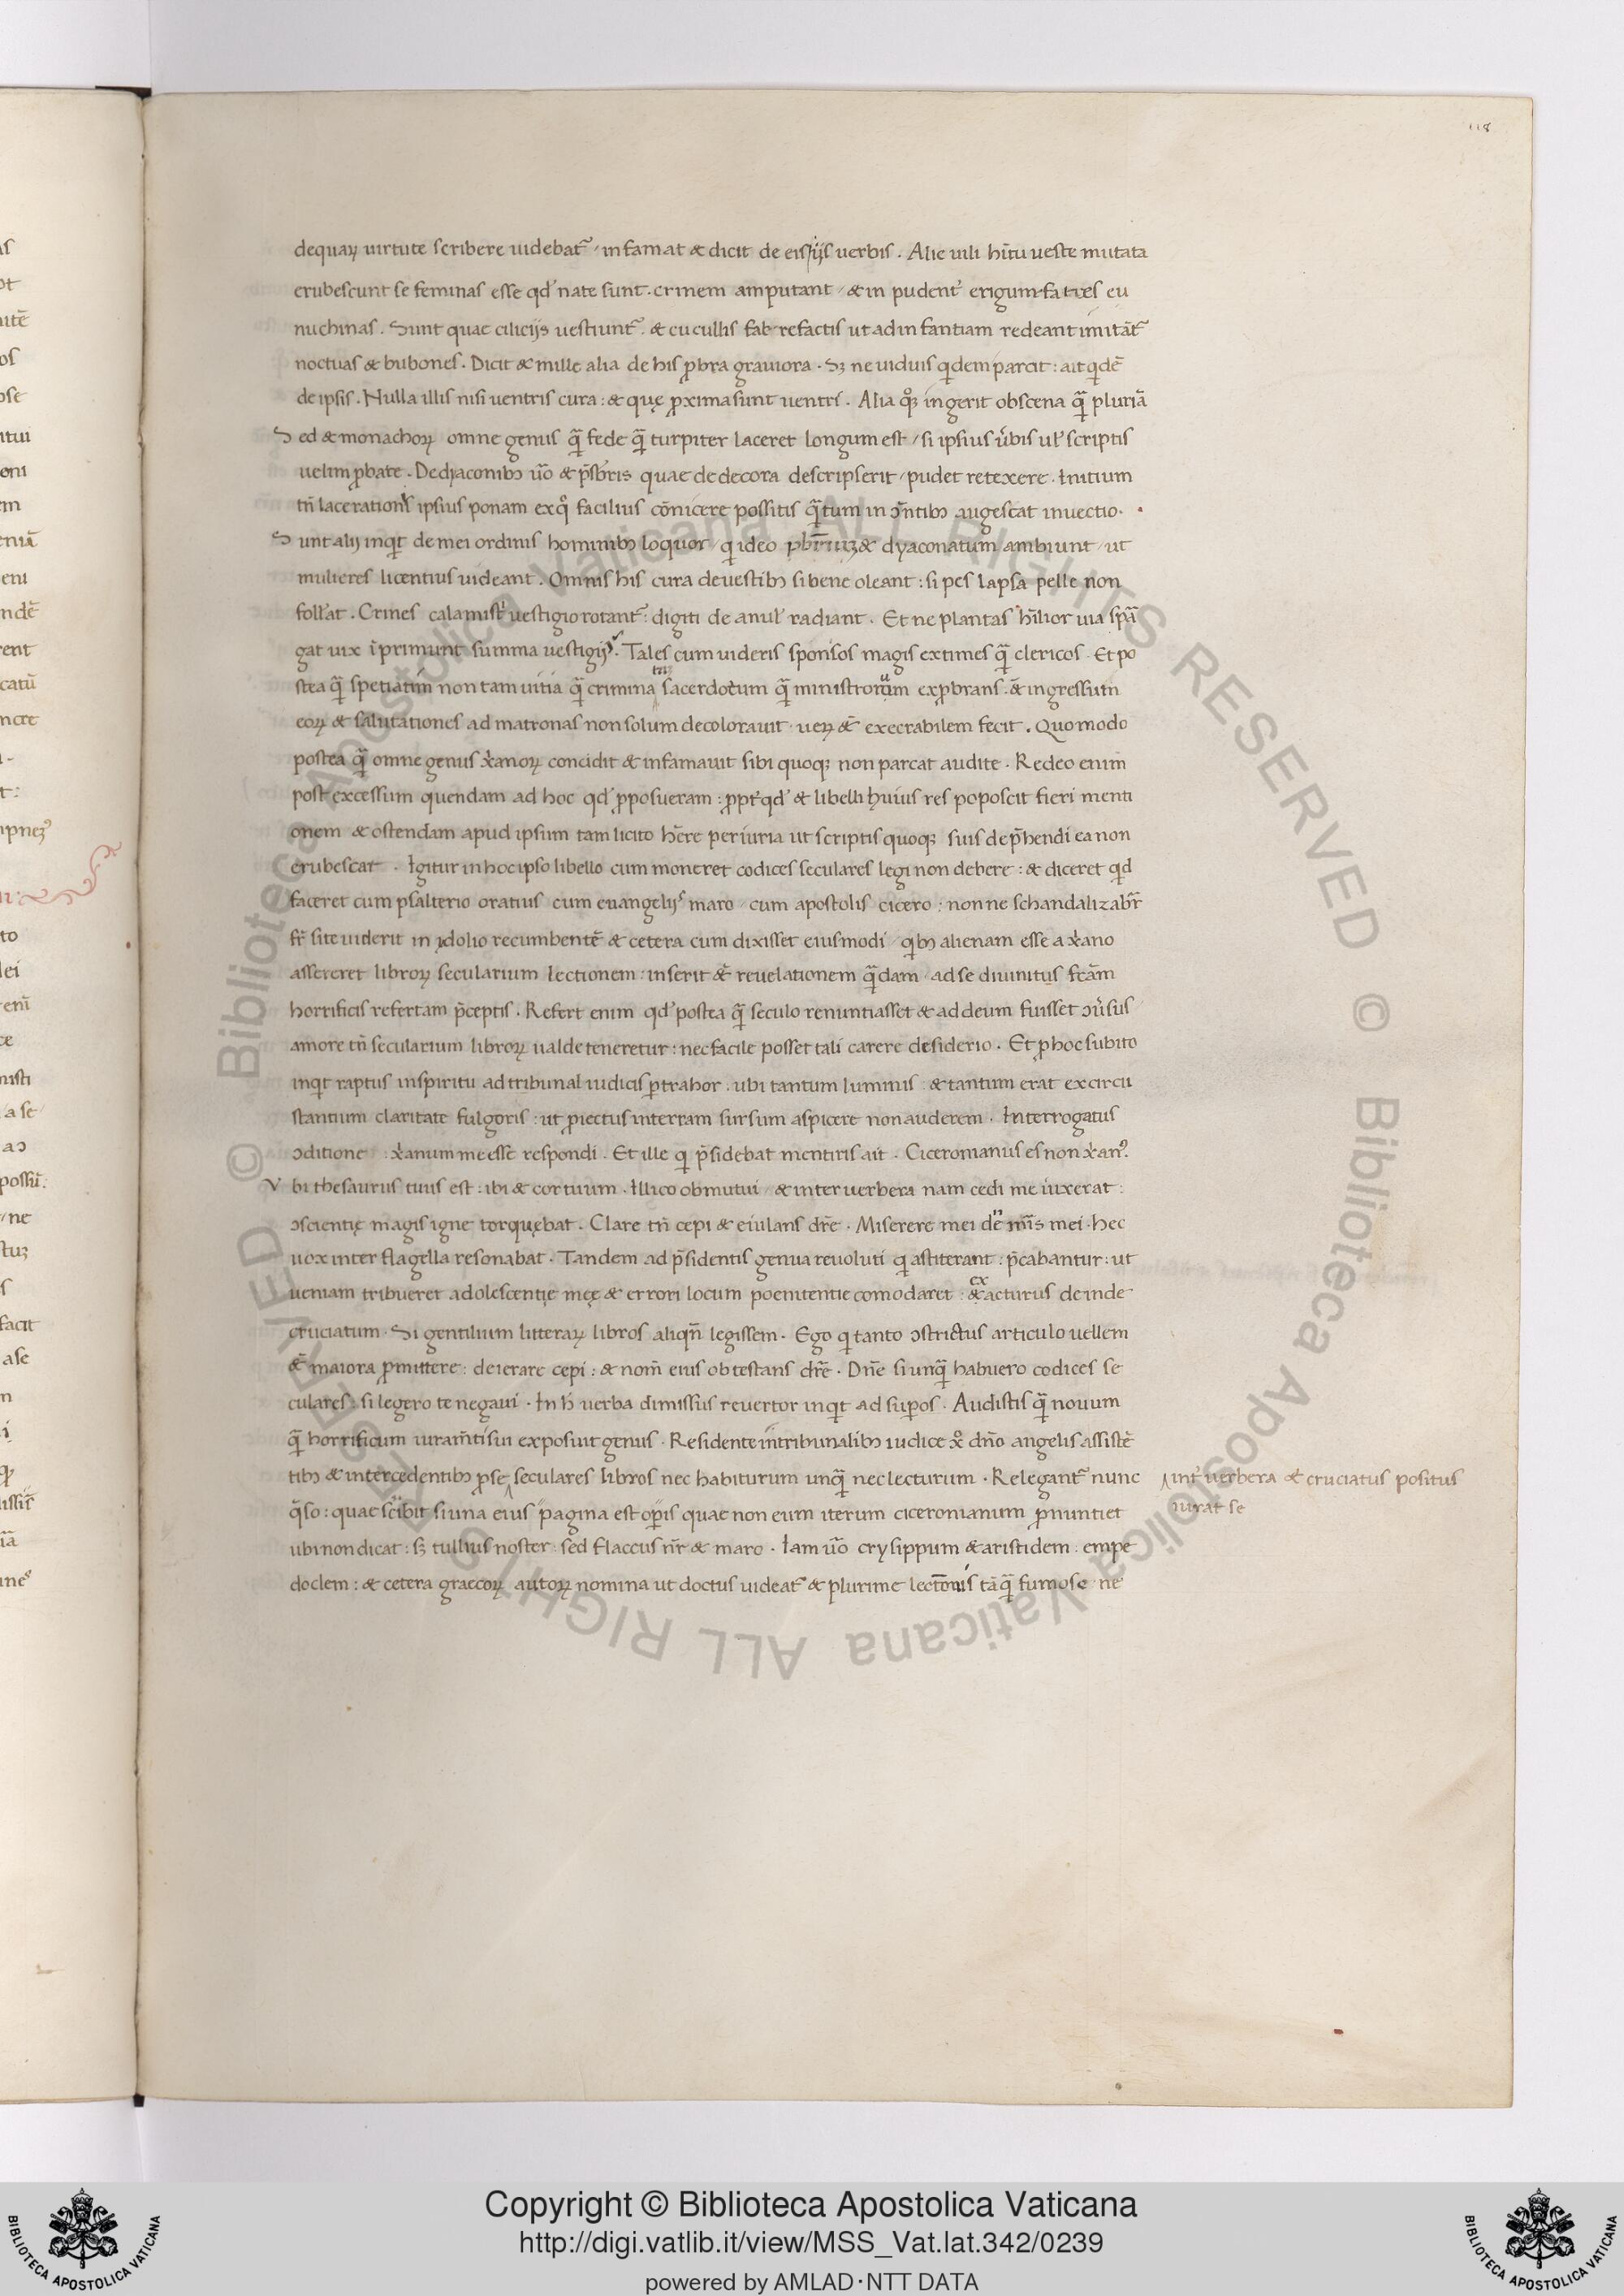 118
dequaꝝ uirtute scribere uidebat᷑ / infamat & dicit de eis ijs uerbis . Alie uili hītu ueste mutata
erubescunt se feminas esse qd' nate sunt . crinem amputant / & in pudent᷑ erigunt facies eu
nuchinas . Sunt quae cilicijs uestiunt᷑ & cucullis fabrefactis ut ad infantiam redeant imitāt᷑
noctuas & bubones . Dicit & mille alia de his ꝓbra grauiora . Sꝫ ne uiduis qidem parcit : ait qidē
de ipsis . Nulla illis nisi uentris cura : & quę ꝓxima sunt uentri . Alia qꝫ ingerit obscena q̄ pluriā
Sed & monachoꝝ omne genus q̄ fede q̄ turpiter laceret longum est / si ipsius ůbis ul' scriptis
uelim ꝓbate . De dyaconibꝫ ůo & p̄sbr̄is quae dedecora descripserit / pudet retexere . Initium
tn̄ lacerationis ipsius ponam ex qͦ facilius cōnicere possitis q̄tum in ɔn̄tibꝫ augescat inuectio .
Sunt alij inqit de mei ordinis hominibꝫ loquor / qi ideo pbr̄iuꝫ & dyaconatum ambiunt / ut
mulieres licentius uideant . Omnis his cura de uestibꝫ si bene oleant : si pes lapsa pelle non
follēat . Crines calamistͥ uestigio rotant᷑ : digiti de anul' radiant . Et ne plantas hūlior uia spā
gat uix īprimunt summa uestigijs . Tales cum uideris sponsos magis extimes q̄ clericos . Et po
stea q̄ spetiatim non tam uitia q̄ crimina tn̄ sacerdotum q̄ ministrorum exꝓbrans . & ingressum
eoꝝ & salutationes ad matronas non solum decolorauit . ueꝝ & execrabilem fecit . Quomodo
postea q̄ omne genus x̄anoꝝ concidit & infamauit sibi quoqꝫ non parcat audite . Redeo enim
post excessum quendam ad hoc qd' ꝓposueram : ꝓpt᷑ qd' & libelli huius res poposcit fieri menti
onem & ostendam apud ipsum tam licito hēre periuria ut scriptis quoqꝫ suis dep̄hendi ea non
erubescat . Igitur in hoc ipso libello cum moneret codices seculares legi non debere : & diceret qid
faceret cum psalterio oratius cum euangelijs maro / cum apostolis cicero : nonne schandalizabr̄
fr̄ si te uiderit in ydolio recumbentē & cetera cum dixisset eiusmodi / qibꝫ alienam esse a x̄ano
assereret libroꝝ secularium lectionem : inserit & reuelationem q̄dam / ad se diuinitus fcām
horrificis refertam p̄ceptis . Refert enim qd' postea q̄ seculo renuntiasset & ad deum fuisset ɔůsus
amore tn̄ secularium libroꝝ ualde teneretur : nec facile posset tali carere desiderio . Et ꝓ hoc subito
inqit raptus inspiritu ad tribunal iudicis ꝑtrahor : ubi tantum luminis : & tantum erat ex circū
stantium claritate fulgoris : ut ꝓiectus in terram sursum aspicere non auderem . Interrogatus
ɔditione : x̄anum me esse respondi . Et ille qi p̄sidebat mentiris ait . Ciceronianus es non x̄anꝰ.
Vbi thesaurus tuus est : ibi & cor tuum . Illico obmutui / & inter uerbera nam cedi me iuxerat :
ɔscientię magis igne torquębat . Clare tn̄ cepi & eiulans dr̄e . Miserere mei dē mīs mei . hec
uox inter flagella resonabat . Tandem ad p̄sidentis genua reuoluti qi astiterant : p̄cabantur : ut
ueniam tribueret adolescentię meę & errori locum poenitentie comodaret : exacturus deinde
cruciatum . Si gentilium litteraꝝ libros aliqn̄ legissem . Ego qi tanto ɔstrictus articulo uellem
& maiora ꝓmittere : deierare cepi : & nom̄ eius obtestans dr̄e . Dn̄e si unq̄ habuero codices se
culares : si legero te negaui . In h̄ uerba dimissus reuertor inqit ad suꝑos . Audistis q̄ nouum
q̄ horrificum iuram̄ti sui exposuit genus . Residente in tribunalibꝫ iudice x̄o dn̄o angelis assistē
tibꝫ & intercedentibꝫ ꝓ se seculares libros nec habiturum unq̄ nec lecturum . Relegant᷑ nunc
int᷑ uerbera & cruciatus positus
iurat se
q̄so : quae scͥbit si una eius pagina est oꝑis quae non eum iterum ciceronianum ꝓnuntiet
ubi non dicat : sꝫ tullius noster : sed flaccus nr̄ & maro . Iam ůo crysippum & aristidem : empe
doclem : & cetera graecoꝝ autoꝝ nomina ut doctus uideat᷑ & plurime lectōnis tāq̄ fumose ne